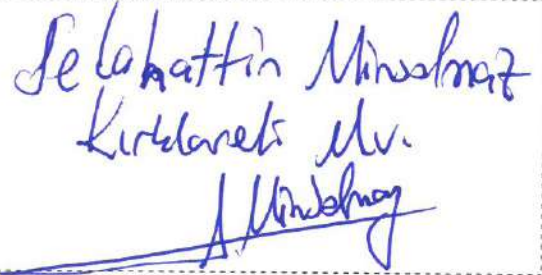 Selahattin Minsolmaz
Kırklareli Mv.
S. Minsolmaz